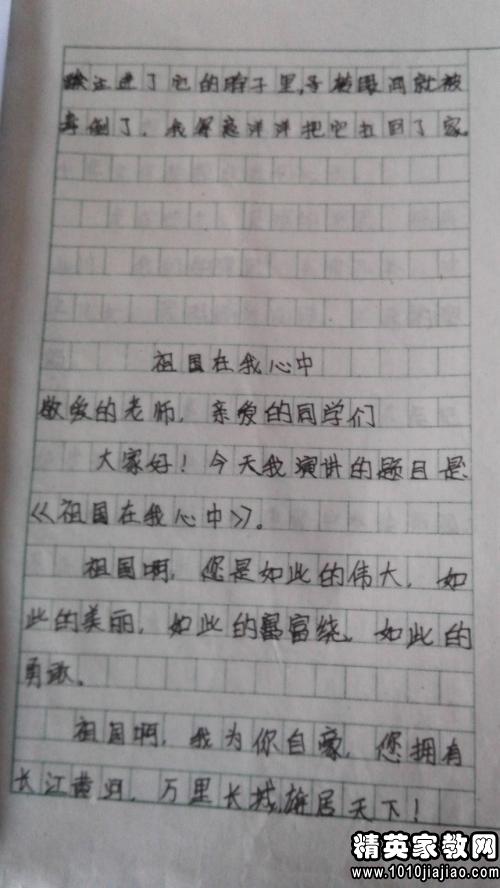 进了它的脖子里,子被眼间就被
倒了。我得意洋洋把它拉回了家。
祖国在我心中
敬爱的老师,亲爱的同学们
大家好!今天我演讲的题目是
《祖国在我心中》。
祖国啊,您是如此的伟大,如
此的美丽,如此的富绕,如此的
勇敢。
祖国啊,我为你自豪,您拥有
长江黄河,万里长城,雄居天下!
精英家教网
www.1010jiajiao.com